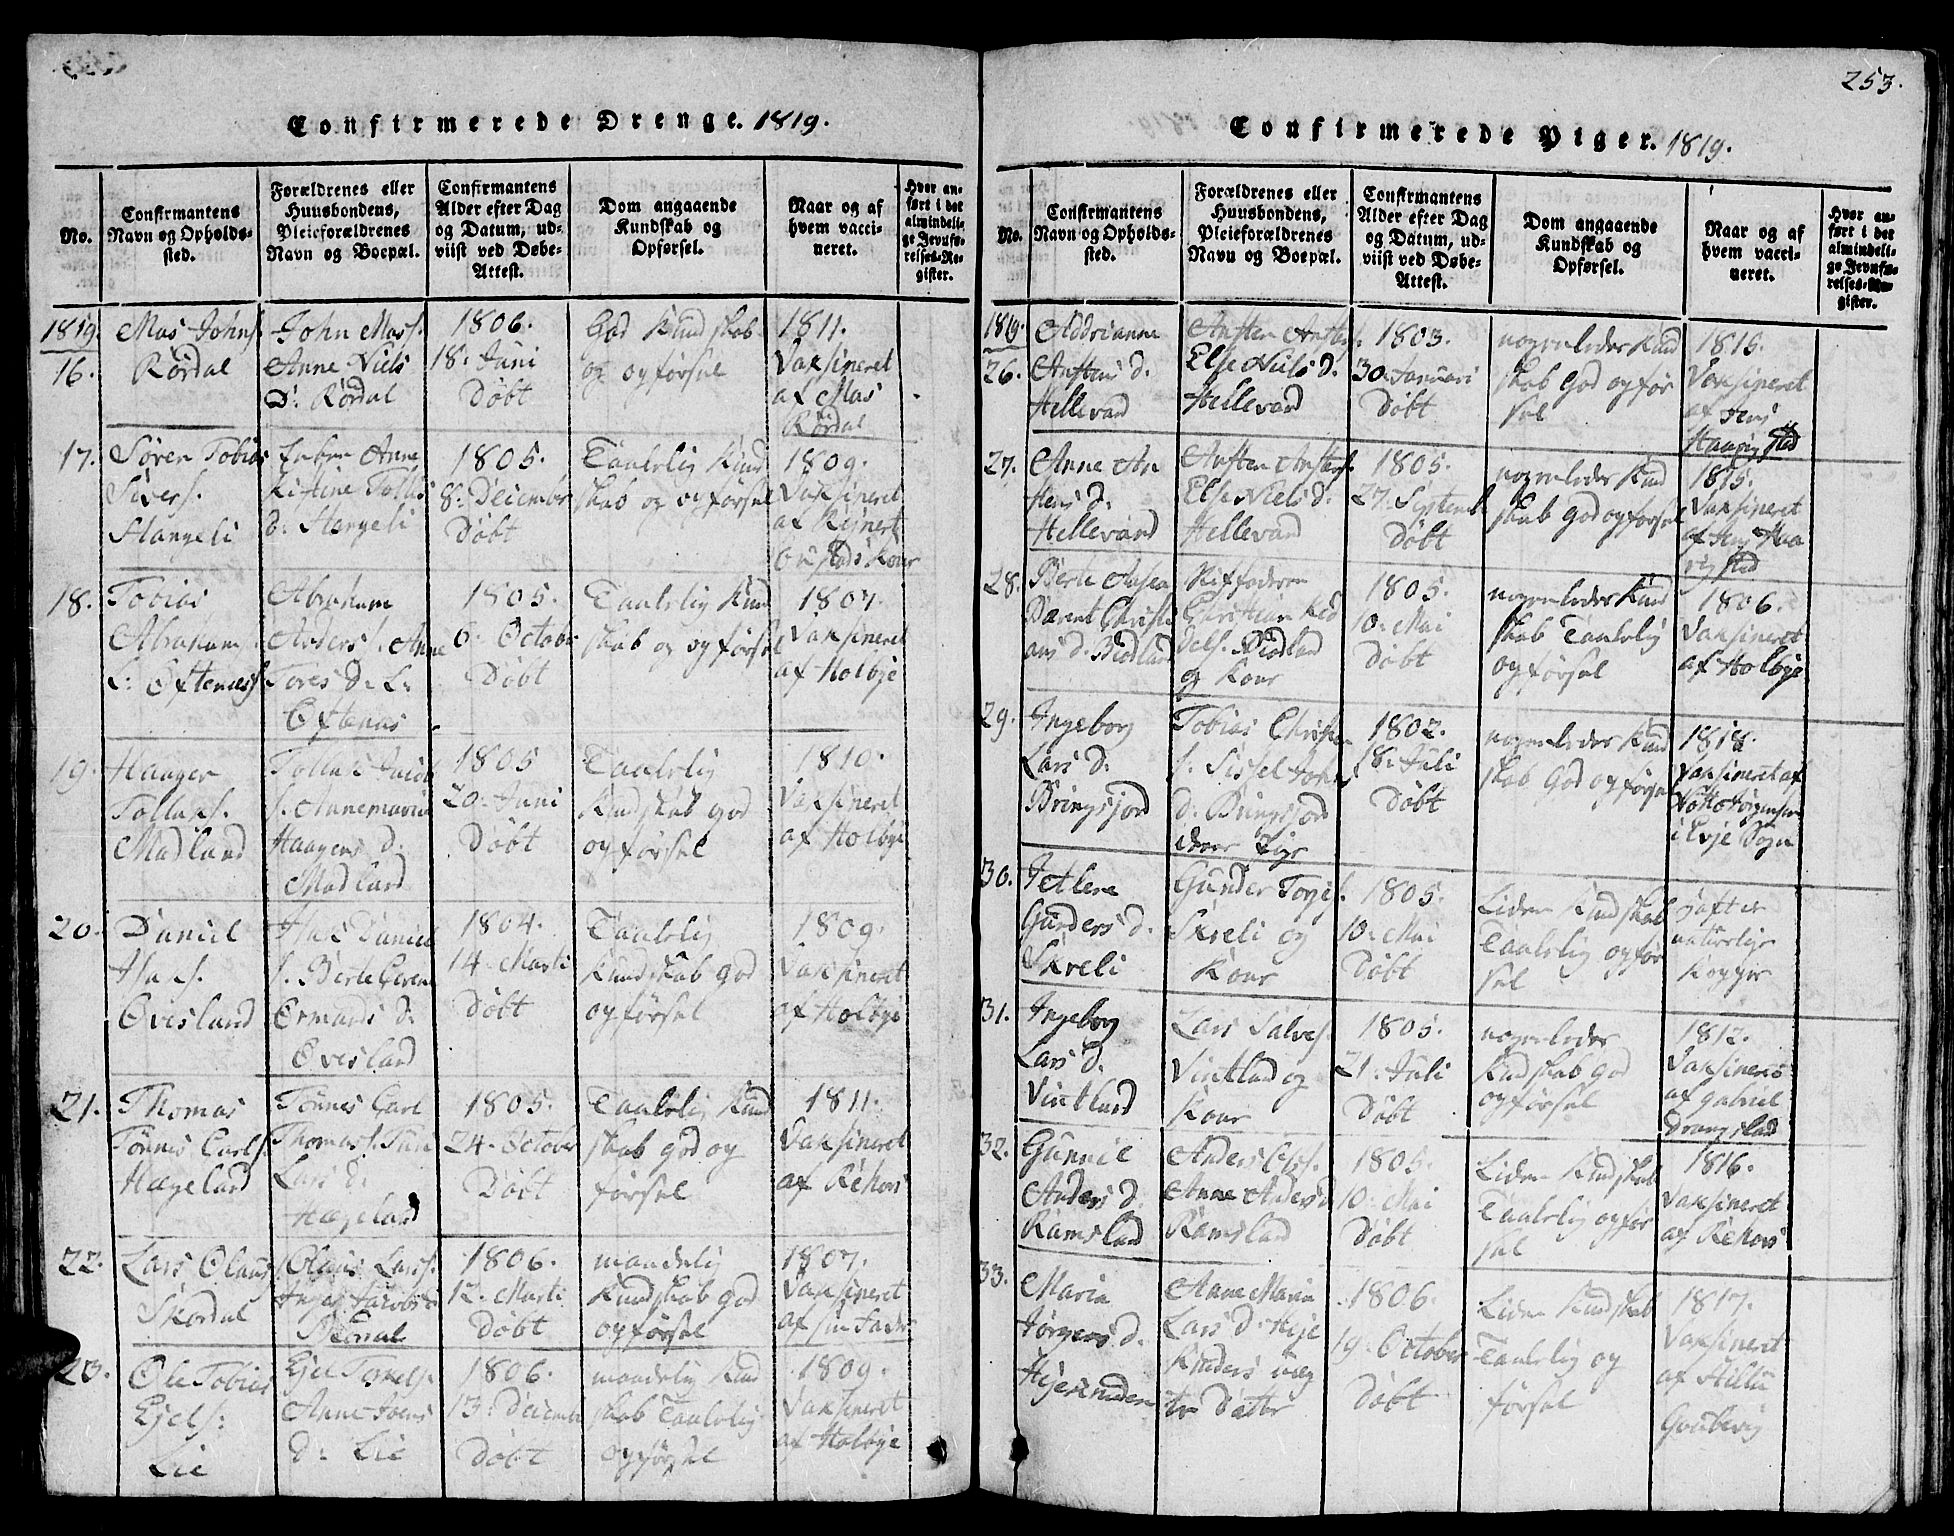 Confirmerede Drenge. 1819.
No.
Confirmantens
Navn og Opholds-
sted.
Forældrenes eller
Huusbondens,
Pleieforældrenes
Navn og Boepæl.
Confirmantens
Alder efter Dag
og Datum, ud-
viist ved Døbe-
Attest.
Dom angaaende
Kundskab og
Opførsel.
Naar og af
hvem vacci-
neret.
Hvor an-
ført i det
almindeli-
ge Jevnfø-
relses-Re-
gister.
1819.
16.
Mas Johns.
Rørdal
John Mass.
Anne Niels
D: Rørdal
1806.
18: Juni
Døbt
God Kundskab
og opførsel
1811.
Vaksineret
af Mas
Rørdal
17.
Søren Tobias
Sivers.
Hangeli
Anne
Kistine Tollis
d: Hangeli
1805.
8: Deicember
Døbt
Taalelig Kund
skab og opførsel
1809.
Vaksineret
af Reinert
Kone
18.
Tobias
Abraham
L: Øftenes
Abraham
Anders. Anne
Tores D: L:
Øftenes
1805.
6: October
Døbt
Taalelig Kund
skab og opførsel
1807.
Vaksineret
af Holbye
19.
Haagen
Tollaks.
Madland
Tollak Jacob
s. Annemarie
Haagens D.
Madland
1805
20: Juni
Døbt
Taalelig
Kundskab god
opførsel
1810.
Vaksineret
af Holbye
20.
Daniel
Isaks.
Øvesland
Isak Daniel
s. Berte Gerene
Ormunds D:
Øvesland
1804.
14: Marti
Døbt
Taalelig
Kundskab god
opførsel
1809.
Vaksineret
af Holbye
21.
Thomas
Tønnes Carls.
Hægeland
Tønnes Carl
Thomas.
Lars D:
Hægeland
1805.
24: October
Døbt
Taalelig Kund
skab god og
førsel
1811.
Vaksineret
af Rehors
22.
Lars Olaus
Skordal
Olaus Lars.
Inger Jacobs D
Skordal
1806.
12: Marti
Døbt
maadelig
Kundskab god
opførsel
1807.
Vaksineret
af sin Fader
23.
Ole Tobias
Ejels:
Lie
Ejel Torkels.
Anne Joens
D: Lie
1806.
13: Deicember
Døbt
maadelig Kund
skab Taalelig
opførsel
1809.
Vaksineret
af Holbye
253.
Confirmerede Piger. 1819.
No.
Confirmantens
Navn og Opholds-
sted.
Forældrenes eller
Huusbondens,
Pleieforældrenes
Navn og Boepæl.
Confirmantens
Alder efter Dag
og Datum, ud-
viist ved Døbe-
Attest.
Dom angaaende
Kundskab og
Opførsel.
Naar og af
hvem vacci-
neret.
Hvor an-
ført i det
almindeli-
ge Jevnfø-
relses-Re-
gister.
1819.
26.
Addrianne
Anstens d.
Hellevand
Ansten Anstens.
Else Niels D.
Hellevand
1803.
30: Januari
Døbt
nogenleder Kund
skab God opfør
sel
1815.
Vaksineret
af Jens
Haagsted
27.
Anne An
stens d.
Hellevand
Ansten Anstens.
Else Niels d.
Hellevand
1805.
27: Septemb
Døbt
nogenleder Kund
skab God opførsel
1815.
Vaksineret
af Jens Haa
rigsted
28.
Berte
Christi
ans d. Birdland
Stiffaderen
Christian
dels. Birdland
og Kone
1805.
10: Mai
Døbt
nogenleder Kund
skab Taalelig
opførsel
1806.
Vaksineret
af Holbye
29.
Ingeborg
Lars D.
Bringsjord
Tobias Christen
s. Sissel Johns
d: Bringsjord
deres Pige
1802.
18: Juli
Døbt
nogenleder Kund
skab God opførsel
1818.
Vaksineret af
Notto Jørgensen
i Evje Sogn
30.
Jetlene
Gunders D.
Skreli
Gunder Torjes.
Skreli og
Kone
1805.
10: Mai
Døbt
Liden Kundskab
Taalelig opfør
sel
haft de
naturlige
Kopper
31.
Ingeborg
Lars D.
Vintland
Lars Salves.
Vintland og
Kone
1805.
21: Juli
Døbt
nogenleder
Kundskab God
opførsel
1812.
Vaksineres
af Gabriel
Drangsland
32.
Gunnil
Anders D.
Ramsland
Anders
Anne Anders D
Ramsland
1805.
10: Mai
Døbt
Liden Kundskab
Taalelig opfør
sel
1816.
Vaksineret
af Rehors
33.
Maria
Jørgens D.
Anne Maria
Lars D: Heje
Døtter
1806.
19: October
Døbt
Liden Kundskab
Taalelig og
førsel
1817.
Vaksineret
af